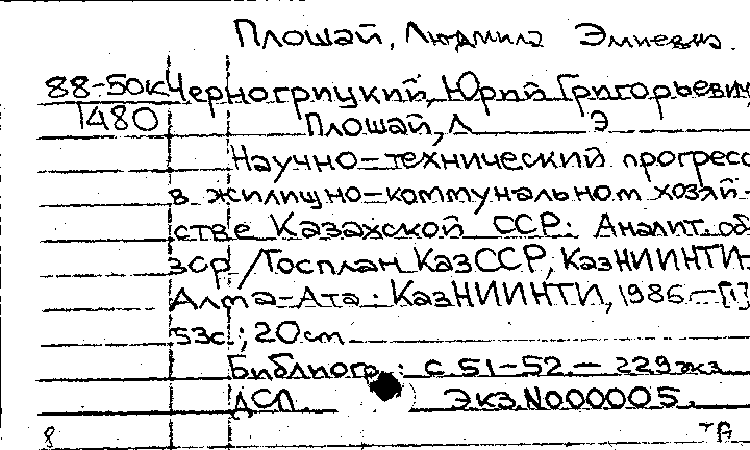 Плошай, Людмила Эмиевна.
88-50к Черногрицкий, Юрий Григорьевич,
1480 Плошай, Л Э
Научно-технический прогресс
в жилищно-коммунальном хозяй-
стве Казахской ССР: Аналит. об
зор / Госплан КазССР, КазНИИНТИ.-
Алма-Ата: КазНИИНТИ, 1986.-[1]
53с.; 20см.
Библиогр.: с 51-52.- 229экз
ДСП. Экз.N000005.
8 ТА